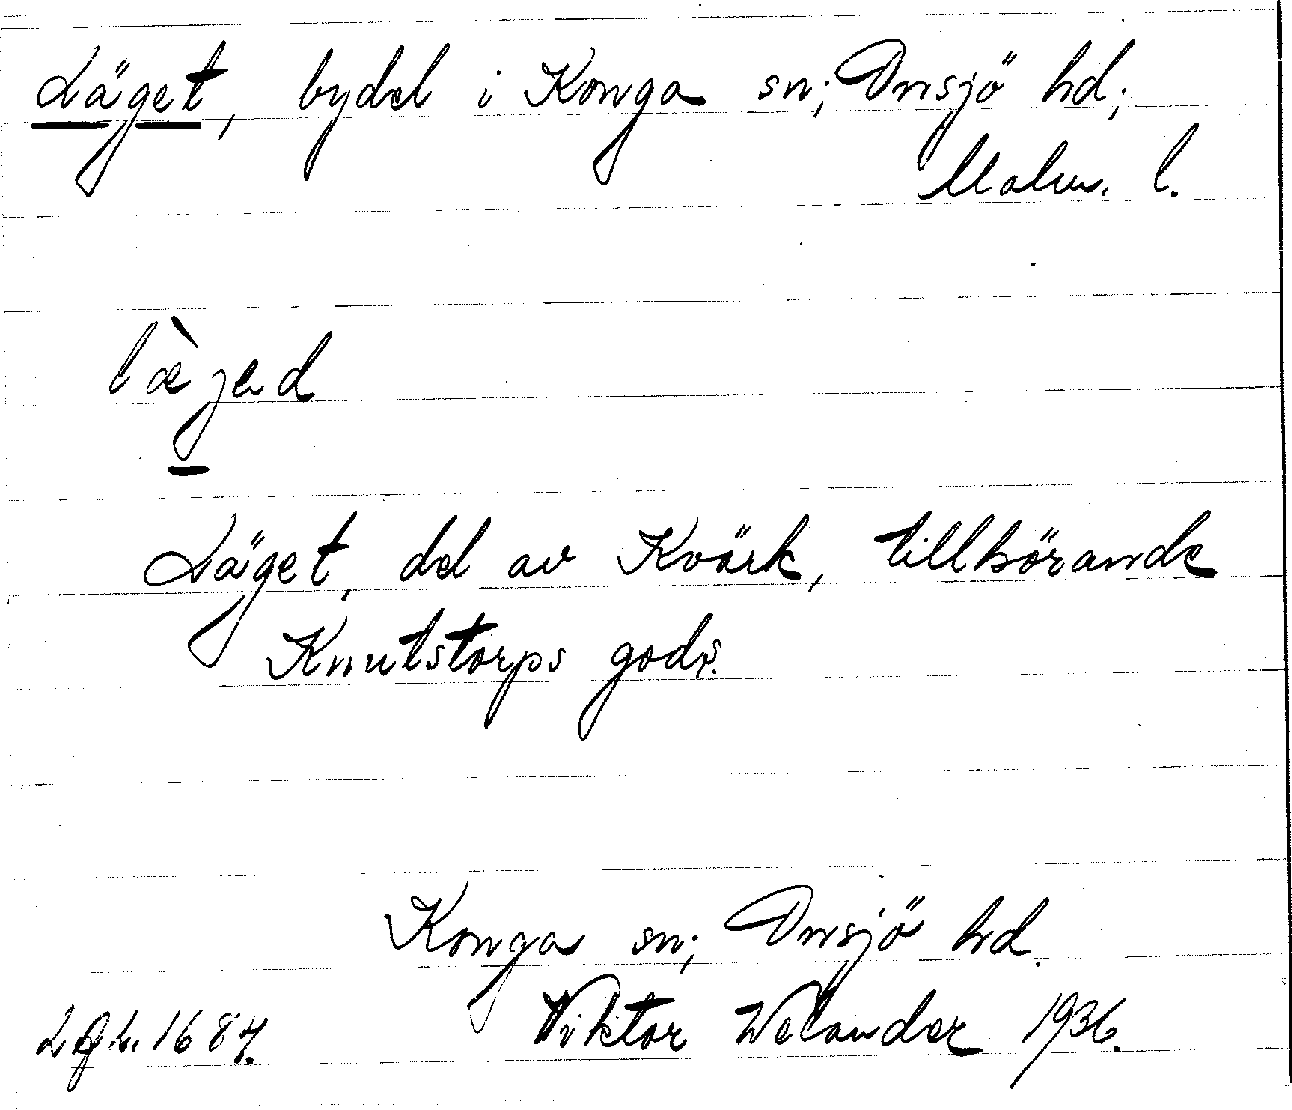 Läget, bydel i Konga sn; Onsjö hd;
Malm. l.
læ̀jed
Läget, del av Kvärk, tillhörande
Knutstorps gods.
Konga sn; Onsjö hd.
Viktor Welander 1936.
1684.